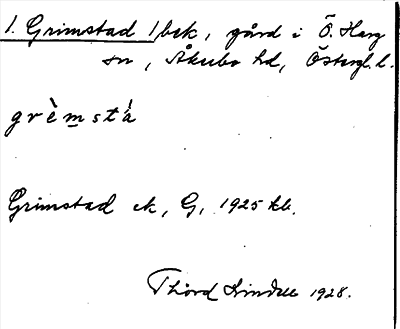 1. Grimstad 1/bek, gård i Ö. Harg
sn, Åkerbo hd, Östergl. l.
grè̀mstá
Grimstad ek, G, 1925 kb.
Thörd Lindell 1928.